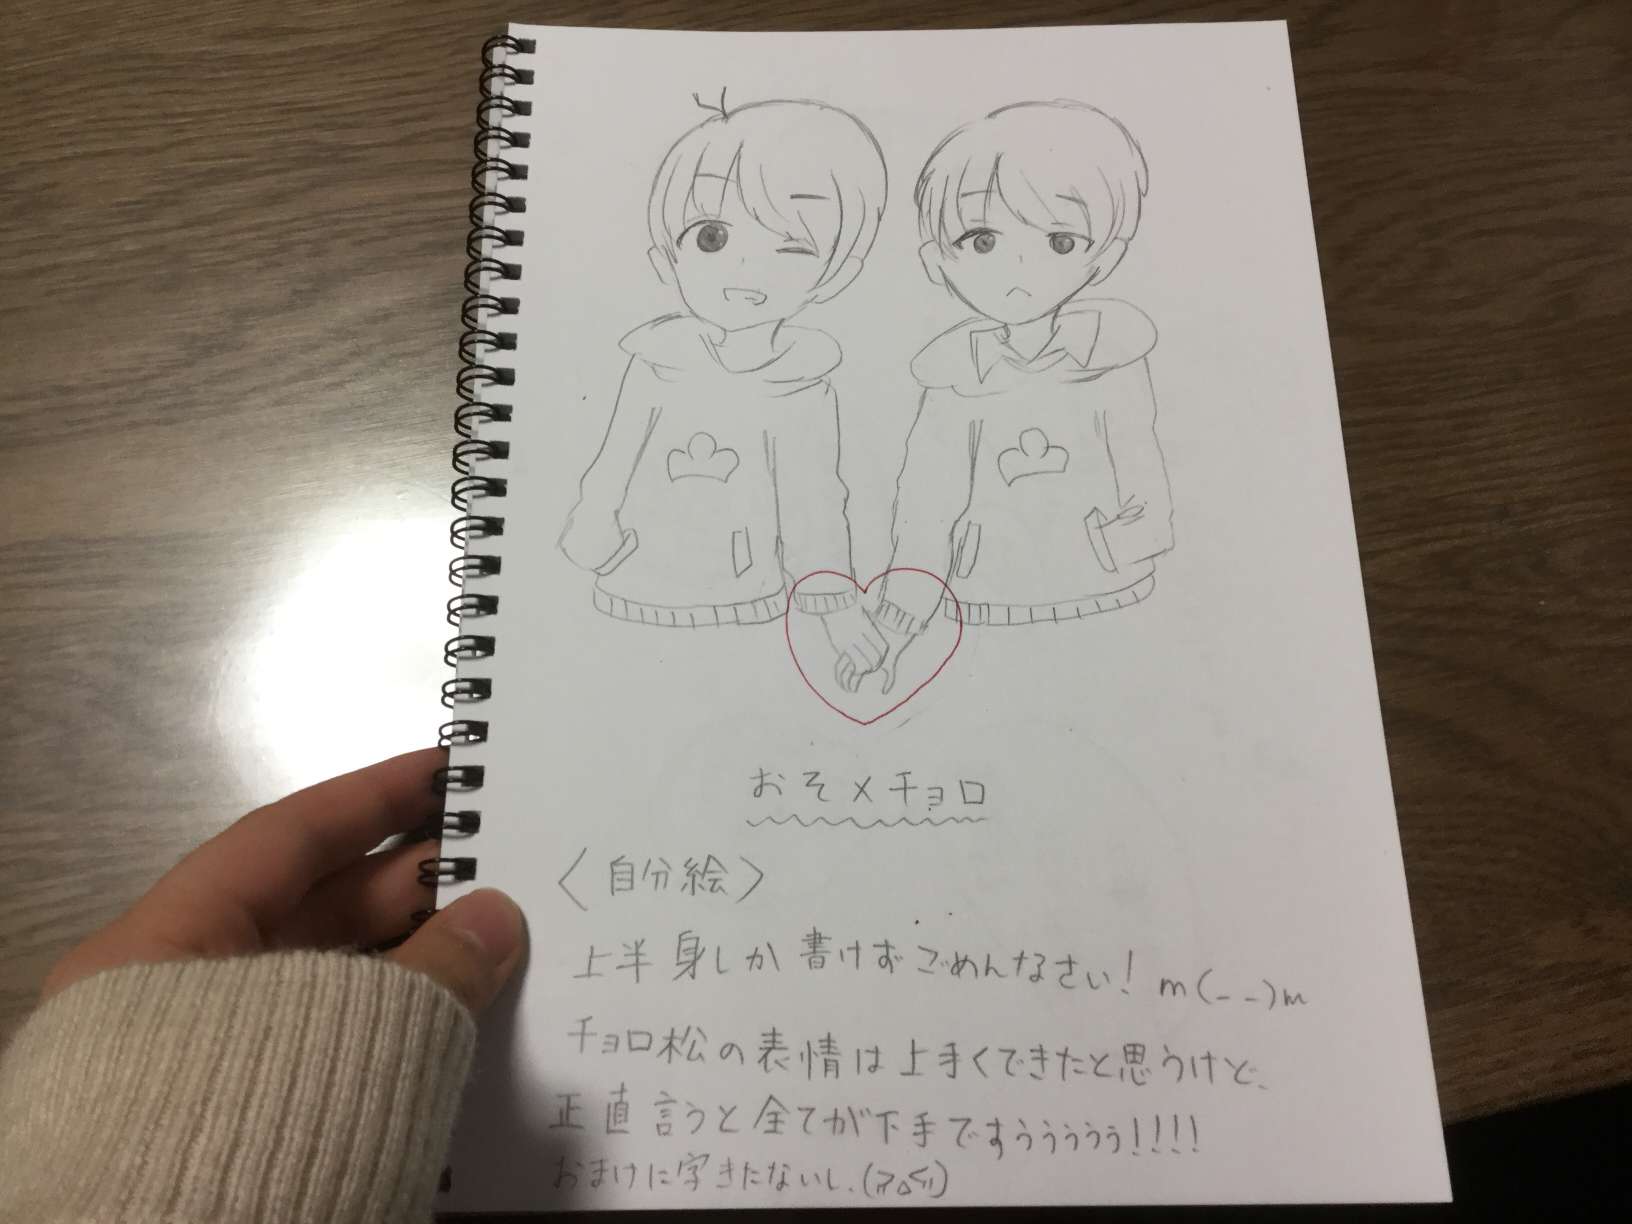 おそ×チョロ
〈自分絵〉
上半身しか書けずごめんなさい！m(_ _)m
チョロ松の表情は上手くできたと思うけど、
正直言うと全てが下手ですぅぅぅぅぅ!!!!
おまけに字きたないし、(≧△≦)